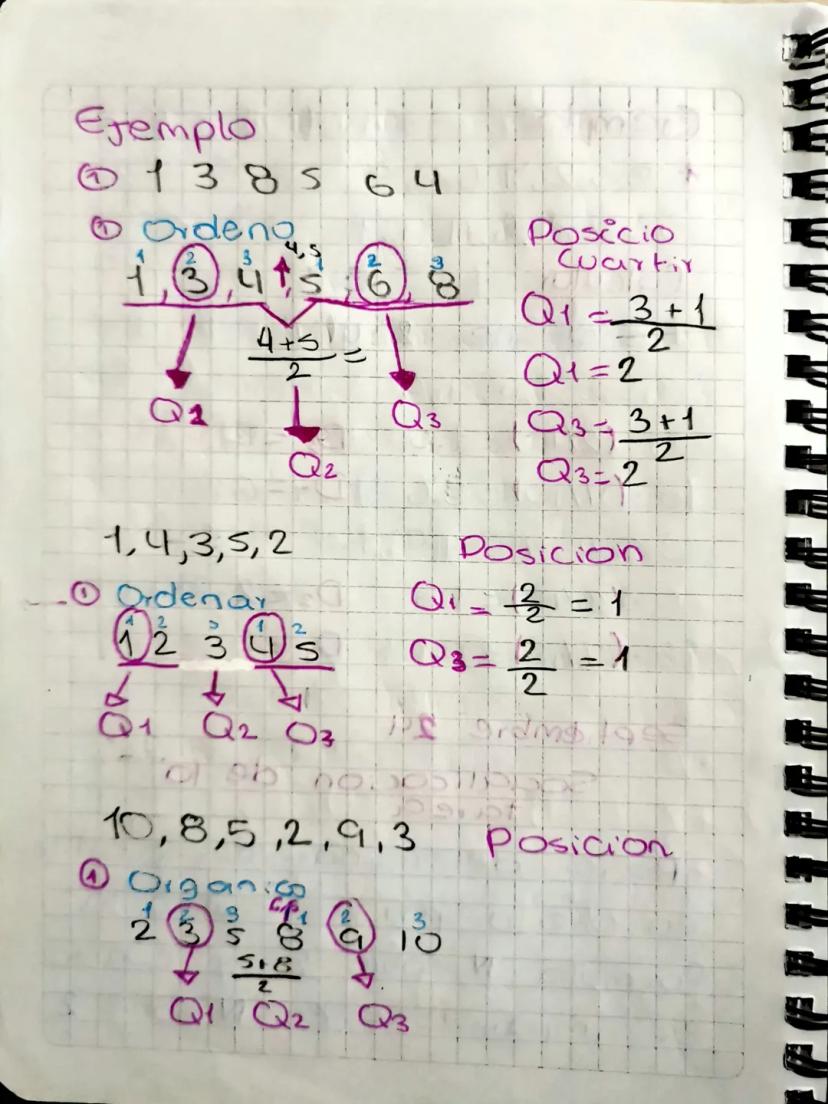 Ejemplo
① 1 3 8 5 6 4
① Ordeno
4,5
1 2 3 1 2 3
1, 3, 4, 5, 6, 8
4+5
2 =
Q1 Q3
Q2
Posicio
Cuartir
Q1 = 3+1
2
Q1 = 2
Q3 = 3+1
2
Q3 = 2
1,4,3,5,2
① Ordenar
1 2 3 1 2
1 2 3 4 5
Q1 Q2 Q3
Posicion
Q1 = 2/2 = 1
Q3 = 2/2 = 1
10, 8, 5, 2, 9, 3 Posicion
① Organico
1 2 3 1 2 3
2 3 5 8 9 10
5+8
2
Q1 Q2 Q3